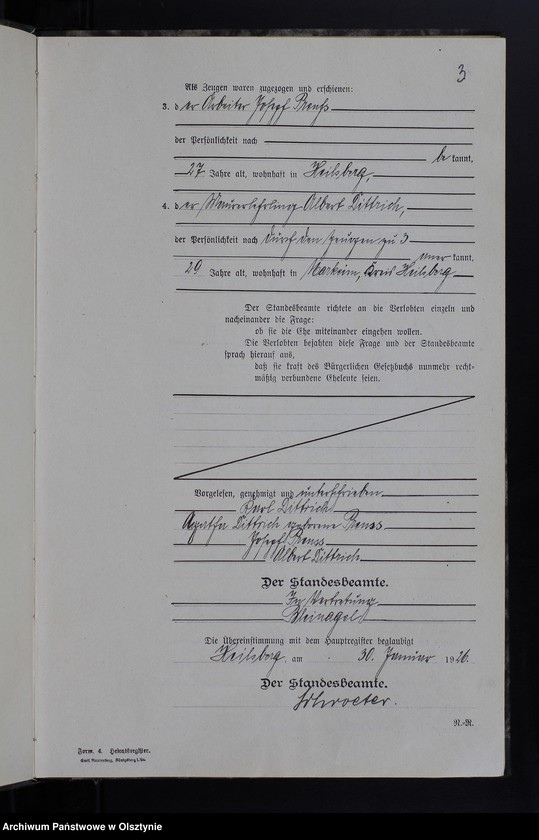 3
Als Zeugen waren zugezogen und erschienen:
3. der Arbeiter Josef Preuß
der Persönlichkeit nach
be kannt,
27 Jahre alt, wohnhaft in Heilsberg,
4. der Maurerlehrling Albert Dittrich,
der Persönlichkeit nach durch den Zeugen zu 3
aner kannt,
20 Jahre alt, wohnhaft in Markeim, Kreis Heilsberg
Der Standesbeamte richtete an die Verlobten einzeln und
nacheinander die Frage:
ob sie die Ehe miteinander eingehen wollen.
Die Verlobten bejahten diese Frage und der Standesbeamte
sprach hierauf aus,
daß sie kraft des Bürgerlichen Gesetzbuchs nunmehr recht-
mäßig verbundene Eheleute seien.
Vorgelesen, genehmigt und unterschrieben
Karl Dittrich
Agatha Dittrich geborene Preuss
Josef Preuss
Albert Dittrich
Der Standesbeamte.
In Vertretung
Die Übereinstimmung mit dem Hauptregister beglaubigt
Heilsberg, am 30. Januar 1926.
Der Standesbeamte.
Schroeter.
N.-R.
Form. C. Heiratsregister.
Königsberg i. Pr.
Archiwum Państwowe w Olsztynie